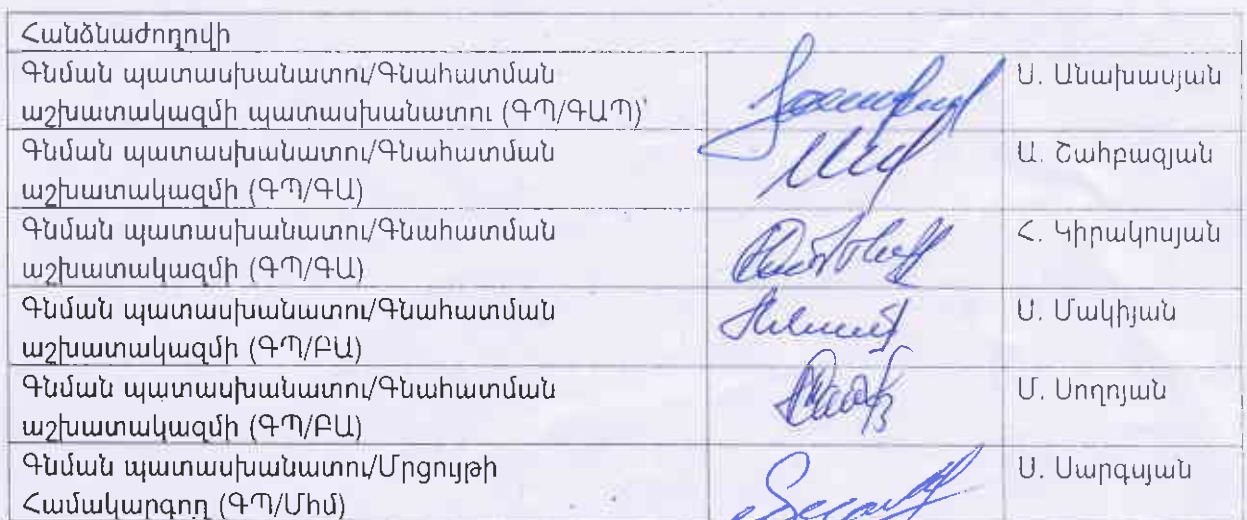 Հանձնաժողովի
Գնման պատասխանատու/Գնահատման
աշխատակազմի պատասխանատու (ԳՊ/ԳԱՊ)՝
Ս. Անախասյան
Գնման պատասխանատու/Գնահատման
աշխատակազմի (ԳՊ/ԳԱ)
Ա. Շահբազյան
Գնման պատասխանատու/Գնահատման
աշխատակազմի (ԳՊ/ԳԱ)
Հ. Կիրակոսյան
Գնման պատասխանատու/Գնահատման
աշխատակազմի (ԳՊ/ԲԱ)
Ս. Մակիյան
Գնման պատասխանատու/Գնահատման
աշխատակազմի (ԳՊ/ԲԱ)
Մ. Սողոյան
Գնման պատասխանատու/Մրցույթի
Համակարգող (ԳՊ/Միմ)
Ս. Սարգսյան